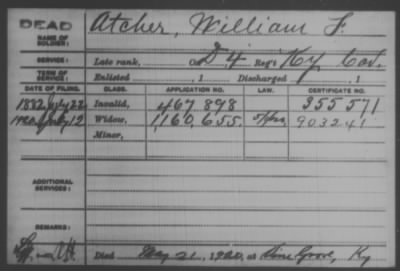 DEAD
Atcher, William F.
NAME OF SOLDIER:
SERVICE: Late rank, Co. D 4 Reg't Ky Cav.
TERM OF SERVICE: Enlisted , 1 Discharged , 1
DATE OF FILING. CLASS. APPLICATION NO. LAW. CERTIFICATE NO.
1882 July 22 Invalid, 467 898 355 571
1920 July 12 Widow, 1,160,655 903241
Minor,
ADDITIONAL SERVICES:
REMARKS:
Died May 21, 1920, at Vine Grove, Ky